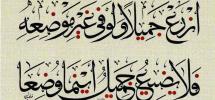 ازرع جميلا ولو في غير موضعه
فلا يضيع جميل أينما وضعا